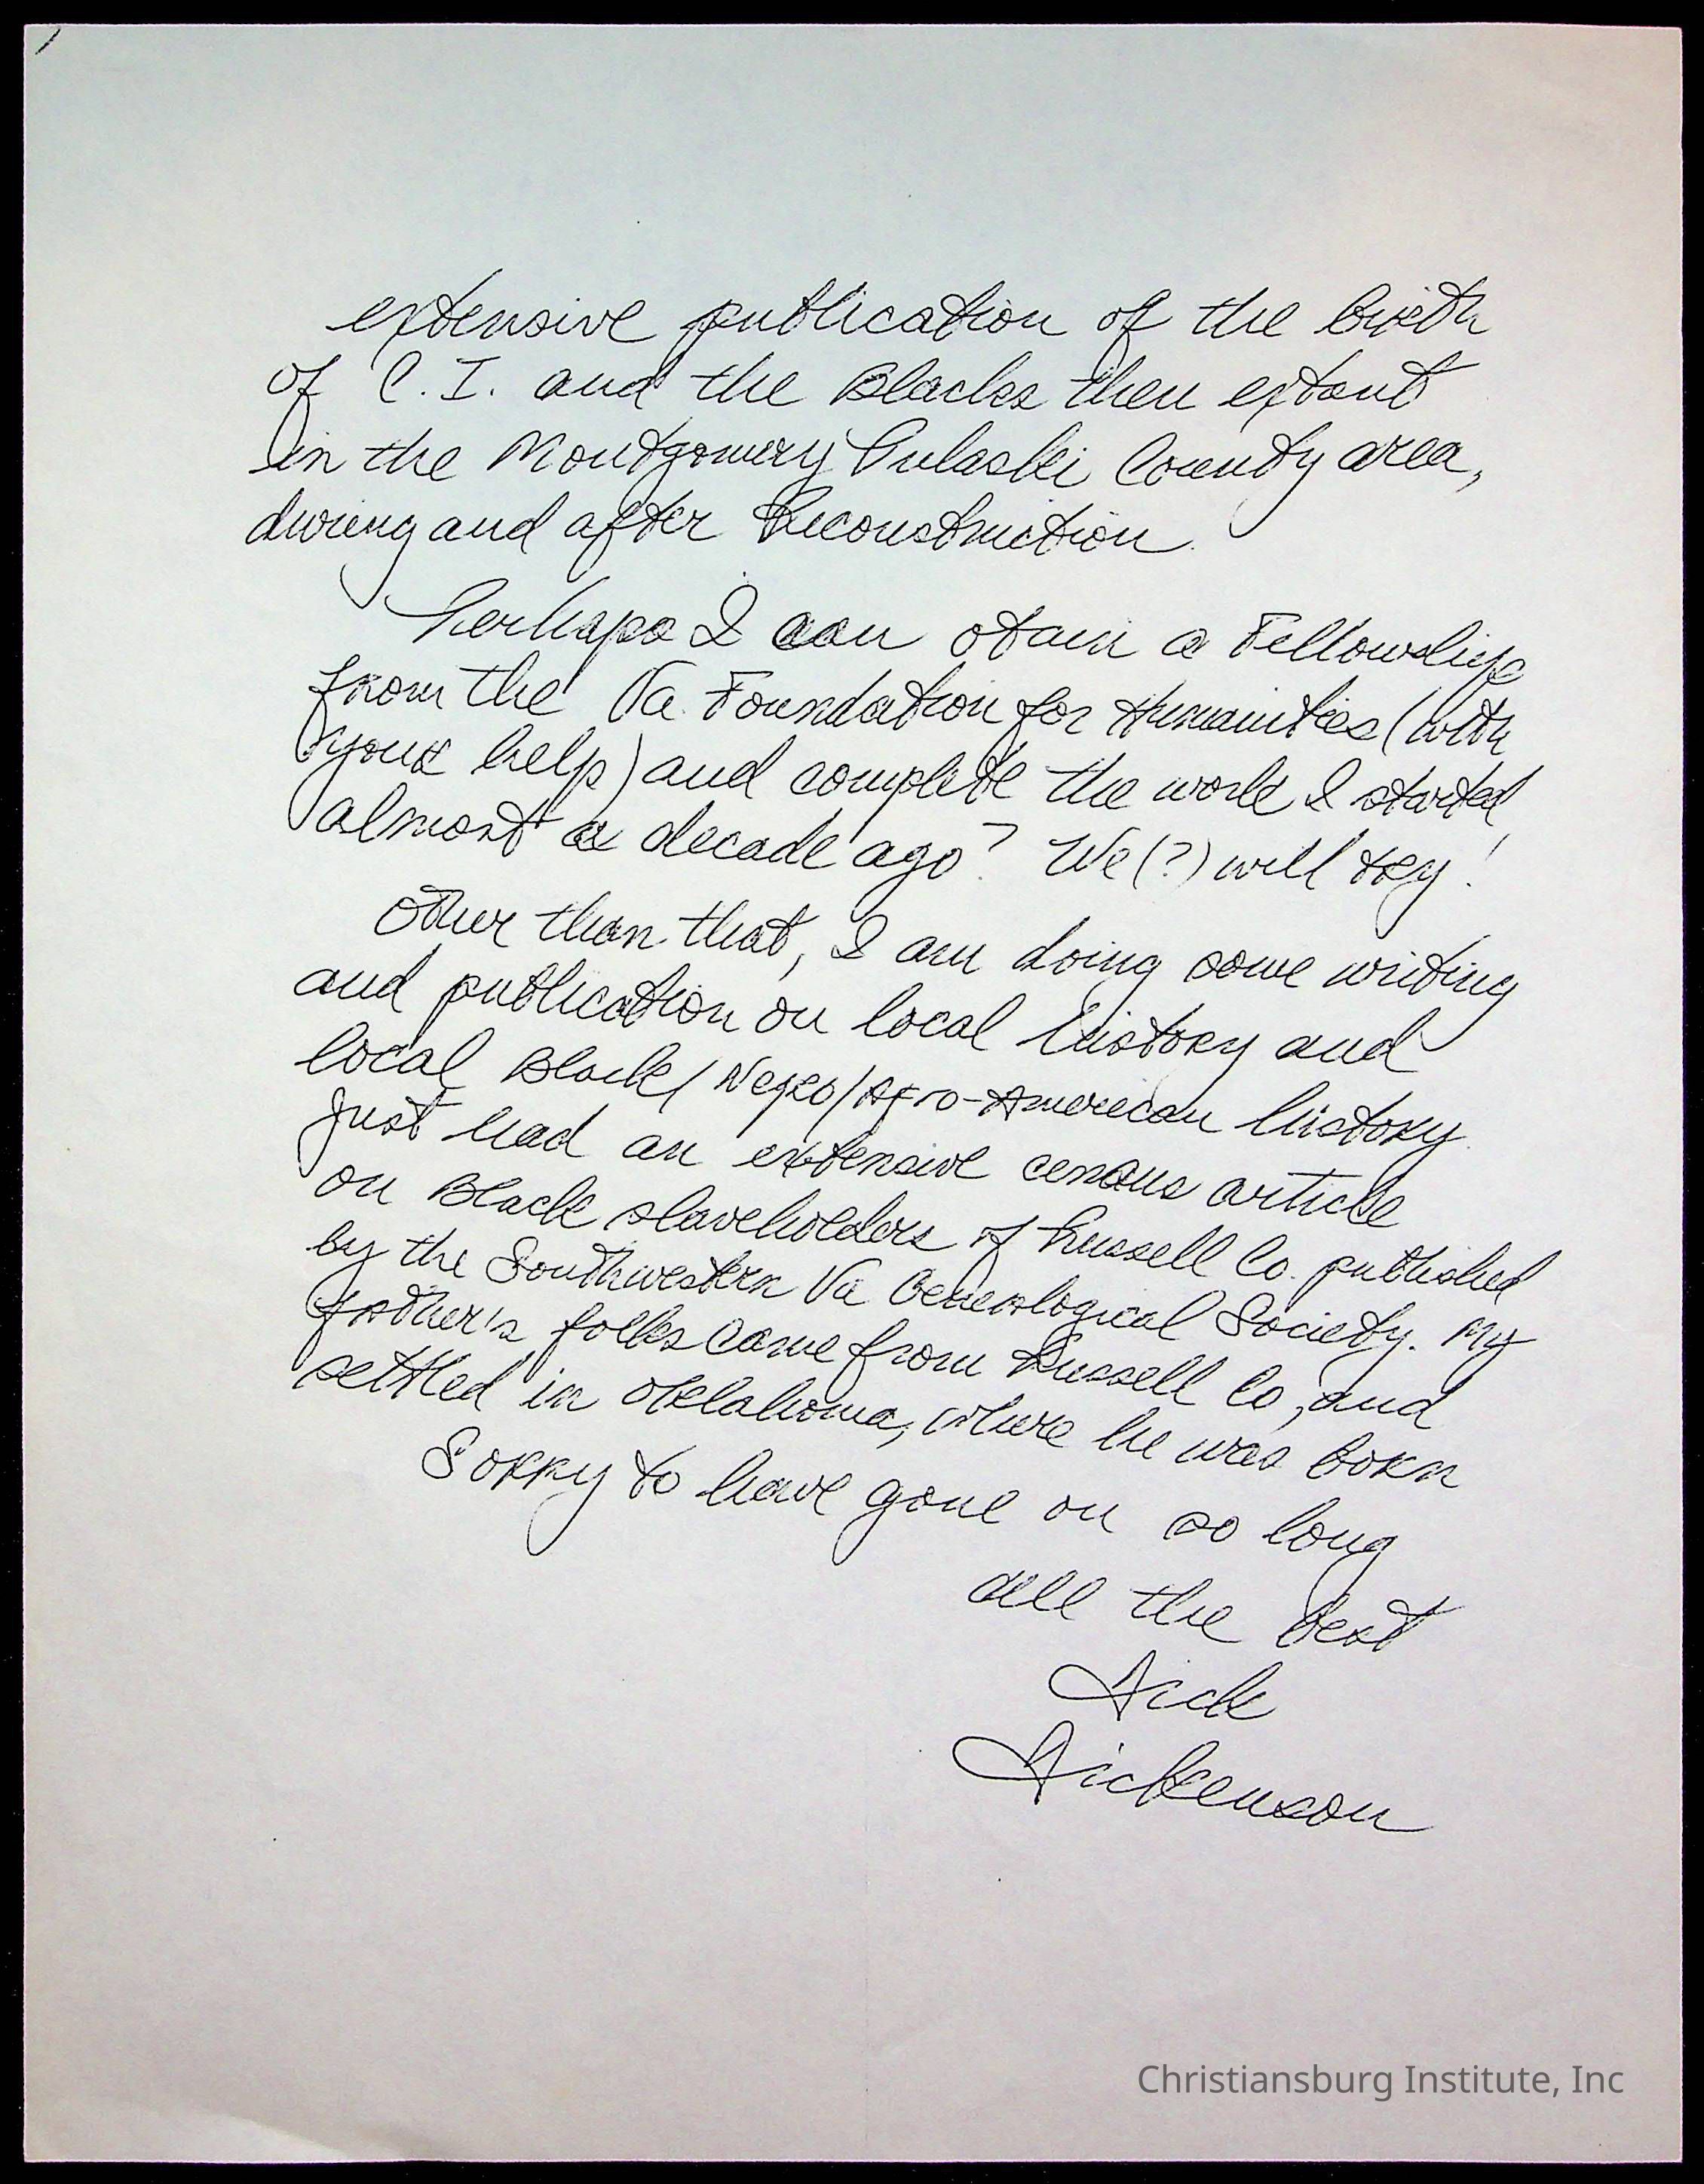 extensive publication of the birth
of C.I. and the Blacks then extant
in the Montgomery Pulaski County area,
during and after Reconstruction.
Perhaps I can otain a Fellowship
from the Va. Foundation for Humanities (with
your help) and complete the work I started
almost a decade ago? We (?) will try!
Other than that, I am doing some writing
and publication on local history and
local Black/Negro/Afro-American history.
Just had an extensive census article
on Black slaveholders of Russell Co. published
by the Southwestern Va Genealogical Society. My
father's folks came from Russell Co, and
settled in Oklahoma, where he was born
Sorry to have gone on so long
all the best
Dick
Dickenson
Christiansburg Institute, Inc